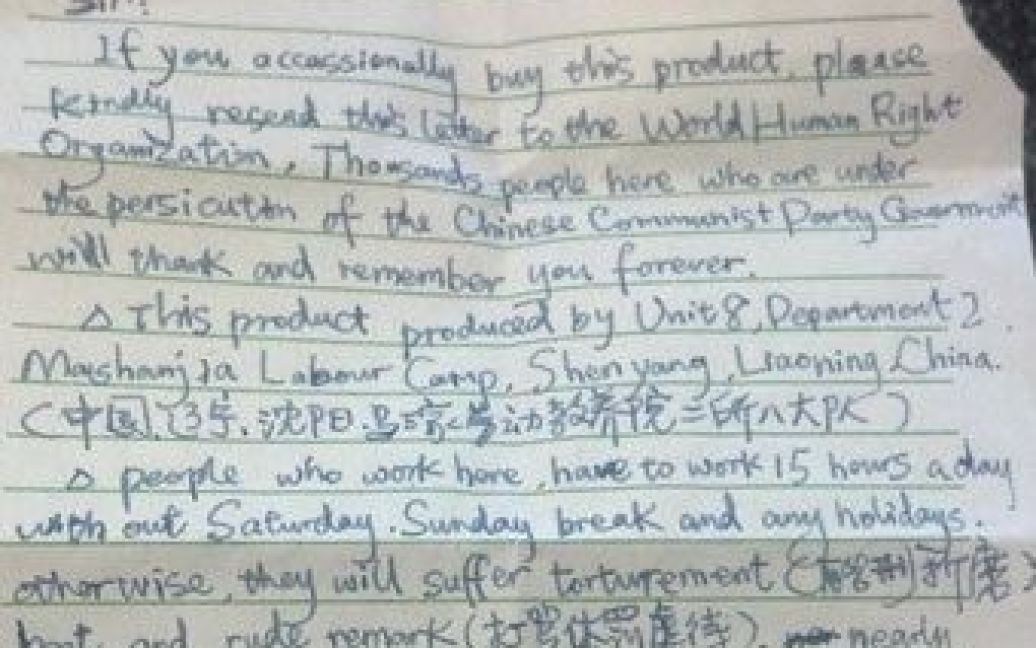 Sir:
If you occassionally buy this product, please
kindly resend this letter to the World Human Right
Organization. Thousands people here who are under
the persicution of the Chinese Communist Party Goverment
will thank and remember you forever.
△ This product produced by Unit 8, Department 2,
Mashanjia Labour Camp, Shenyang, Liaoning, China.
(中国,辽宁,沈阳,马三家劳动教养院二所八大队)
△ people who work here, have to work 15 hours a day
with out Saturday, Sunday break and any holidays.
otherwise, they will suffer torturement (酷刑折磨)
beat and rude remark (打骂体罚虐待), nearly